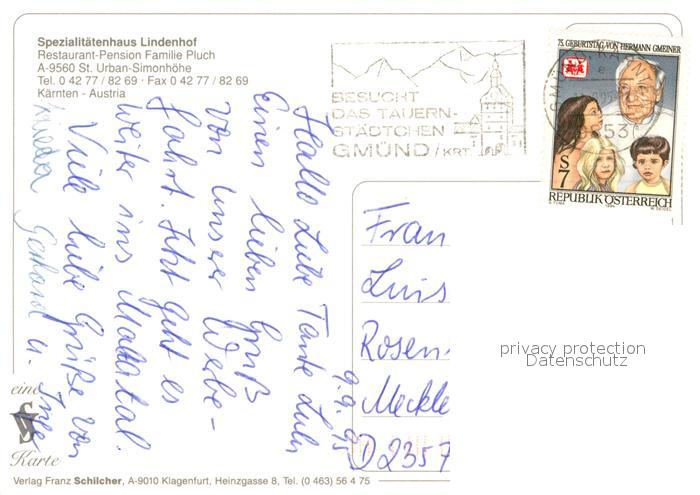 Spezialitätenhaus Lindenhof
Restaurant-Pension Familie Pluch
A-9560 St. Urban-Simonhöhe
Tel. 0 42 77 / 82 69 · Fax 0 42 77 / 82 69
Kärnten - Austria
BESUCHT
DAS TAUERN-
STÄDTCHEN
GMÜND / KRT.
75. GEBURTSTAG VON HERMANN GMEINER
S 7
REPUBLIK ÖSTERREICH
9.9.95
Hallo Liebe Tante
Einen lieben Gruß
von unser Werbe-
fahrt. Jetzt geht es
weiter ins Maltatal.
Viele liebe Grüße von
Gerhard u. Inge
Frau
Luis
Rosen
Meckle
D 2357
privacy protection
Datenschutz
eine
Karte
Verlag Franz Schilcher, A-9010 Klagenfurt, Heinzgasse 8, Tel. (0 463) 56 4 75